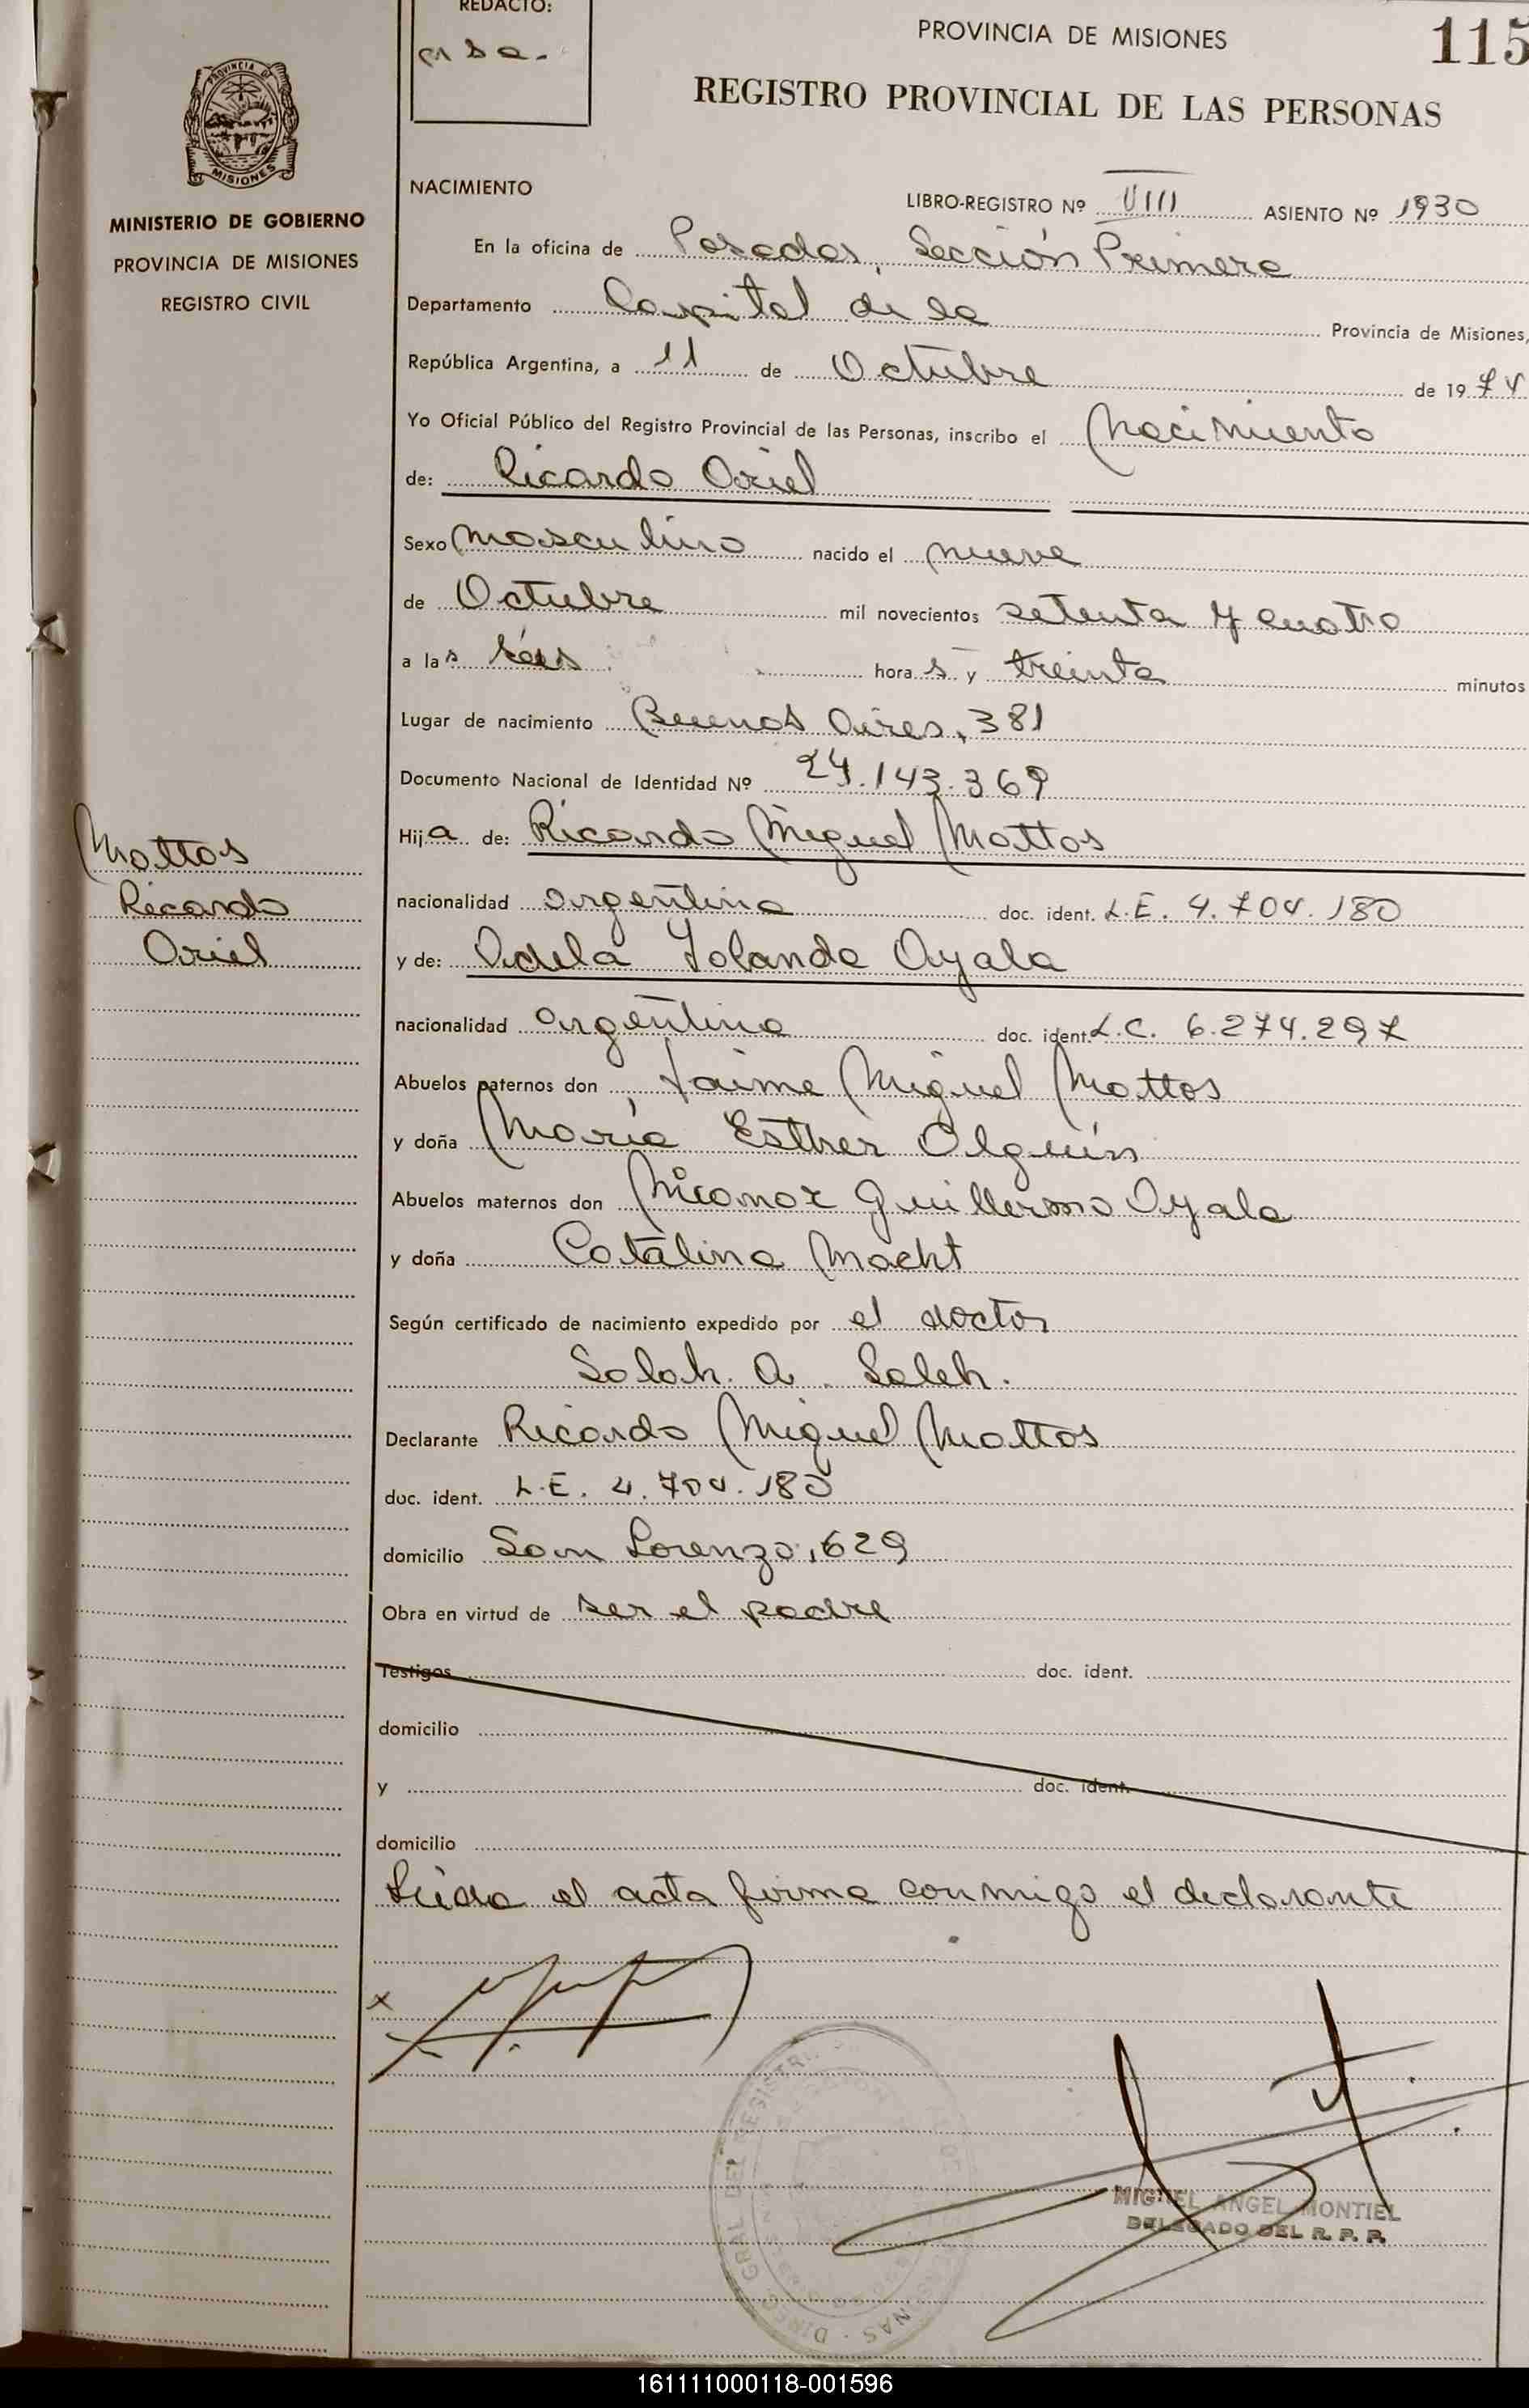 REDACTO:
PROVINCIA DE MISIONES
115
REGISTRO PROVINCIAL DE LAS PERSONAS
PROVINCIA DE
MISIONES
MINISTERIO DE GOBIERNO
PROVINCIA DE MISIONES
REGISTRO CIVIL
NACIMIENTO
LIBRO-REGISTRO Nº VIII ASIENTO Nº 1930
En la oficina de Posadas, Sección Primera
Departamento Capital de la Provincia de Misiones,
República Argentina, a 11 de Octubre de 1974
Yo Oficial Público del Registro Provincial de las Personas, inscribo el Nacimiento
de: Ricardo Oriel
Sexo Masculino nacido el nueve
de Octubre mil novecientos setenta y cuatro
a las seis horas y treinta minutos
Lugar de nacimiento Buenos Aires, 381
Documento Nacional de Identidad Nº 24.143.369
Hija de: Ricardo Miguel Mattos
Mattos
Ricardo
Oriel
nacionalidad argentina doc. ident. L.E. 4.704.180
y de: Adela Yolanda Ayala
nacionalidad argentina doc. ident. L.C. 6.274.297
Abuelos paternos don Jaime Miguel Mattos
y doña María Esther Olguín
Abuelos maternos don Nicanor Guillermo Ayala
y doña Catalina Macht
Según certificado de nacimiento expedido por el doctor
Salah. A. Saleh.
Declarante Ricardo Miguel Mattos
doc. ident. L.E. 4.704.180
domicilio San Lorenzo, 629
Obra en virtud de ser el padre
Testigos doc. ident.
domicilio
y doc. ident.
domicilio
Leida el acta firma conmigo el declarante
x
MIGUEL ANGEL MONTIEL
DELEGADO DEL R. P. P.
161111000118-001596